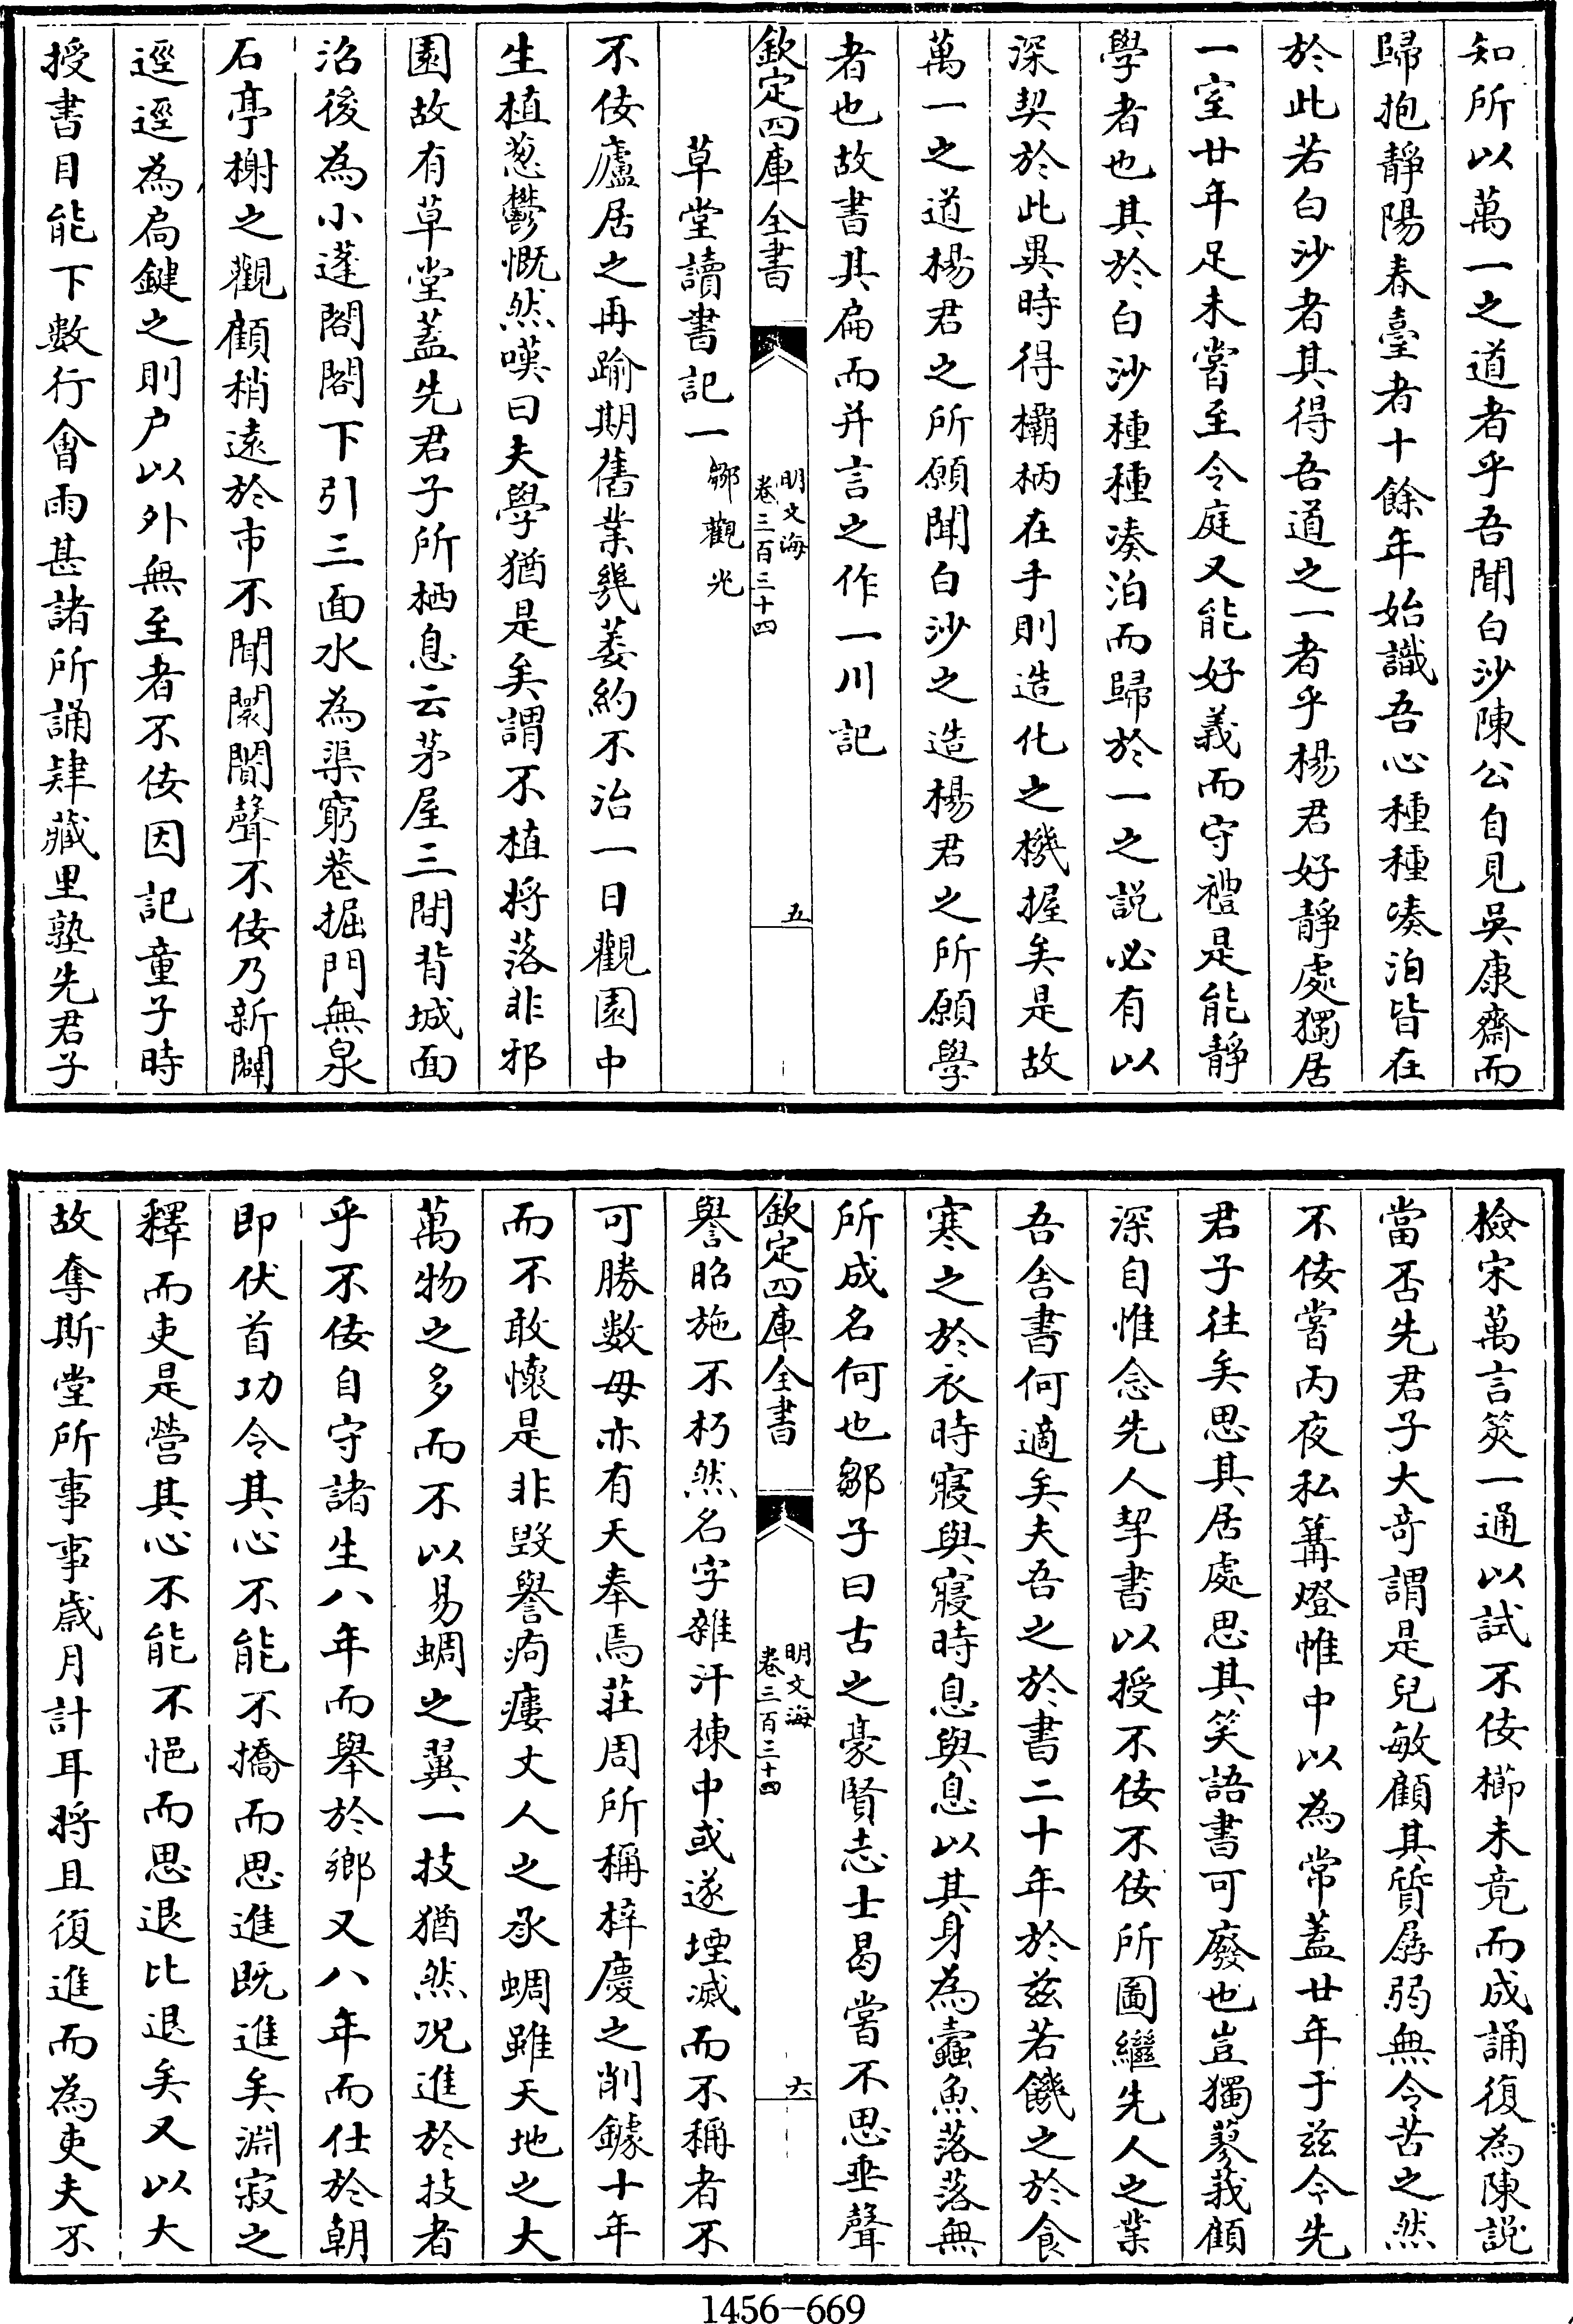 知所以萬一之道者乎吾聞白沙陳公自見吳康齋而
歸抱靜陽春臺者十餘年始識吾心種種凑泊皆在
於此若白沙者其得吾道之一者乎楊君好靜處獨居
一室廿年足未嘗至令庭又能好義而守禮是能靜
學者也其於白沙種種凑泊而歸於一之説必有以
深契於此異時得欛柄在手則造化之機握矣是故
萬一之道楊君之所願聞白沙之造楊君之所願學
者也故書其扁而并言之作一川記
欽定四庫全書
明文海
卷三百三十四
五
草堂讀書記一 鄒觀光
不佞廬居之再踰期舊業幾萎約不治一日觀園中
生植葱鬱慨然嘆曰夫學猶是矣謂不植將落非邪
園故有草堂蓋先君子所栖息云茅屋三間背城面
沼後為小蓬閣閣下引三面水為渠窮巷掘門無泉
石亭榭之觀顧稍遠於市不聞闤闠聲不佞乃新闢
逕逕為扃鍵之則户以外無至者不佞因記童子時
授書目能下數行會雨甚諸所誦肄藏里塾先君子
檢宋萬言筴一通以試不佞櫛未竟而成誦復為陳説
當否先君子大奇謂是兒敏顧其質孱弱無令苦之然
不佞嘗丙夜私篝燈帷中以為常蓋廿年于兹今先
君子往矣思其居處思其笑語書可廢也豈獨蓼莪顧
深自惟念先人挈書以授不佞不佞所圖繼先人之業
吾舍書何適矣夫吾之於書二十年於兹若饑之於食
寒之於衣時寢與寢時息與息以其身為蠹魚落落無
所成名何也鄒子曰古之豪賢志士曷嘗不思垂聲
欽定四庫全書
明文海
卷三百三十四
六
譽昭施不朽然名字雜汗棟中或遂堙滅而不稱者不
可勝數毋亦有天奉焉莊周所稱梓慶之削鐻十年
而不敢懷是非毀譽痀瘻丈人之承蜩雖天地之大
萬物之多而不以易蜩之翼一技猶然况進於技者
乎不佞自守諸生八年而舉於鄉又八年而仕於朝
即伏首功令其心不能不撟而思進既進矣淵寂之
釋而吏是營其心不能不悒而思退比退矣又以大
故奪斯堂所事事歲月計耳將且復進而為吏夫不
1456-669